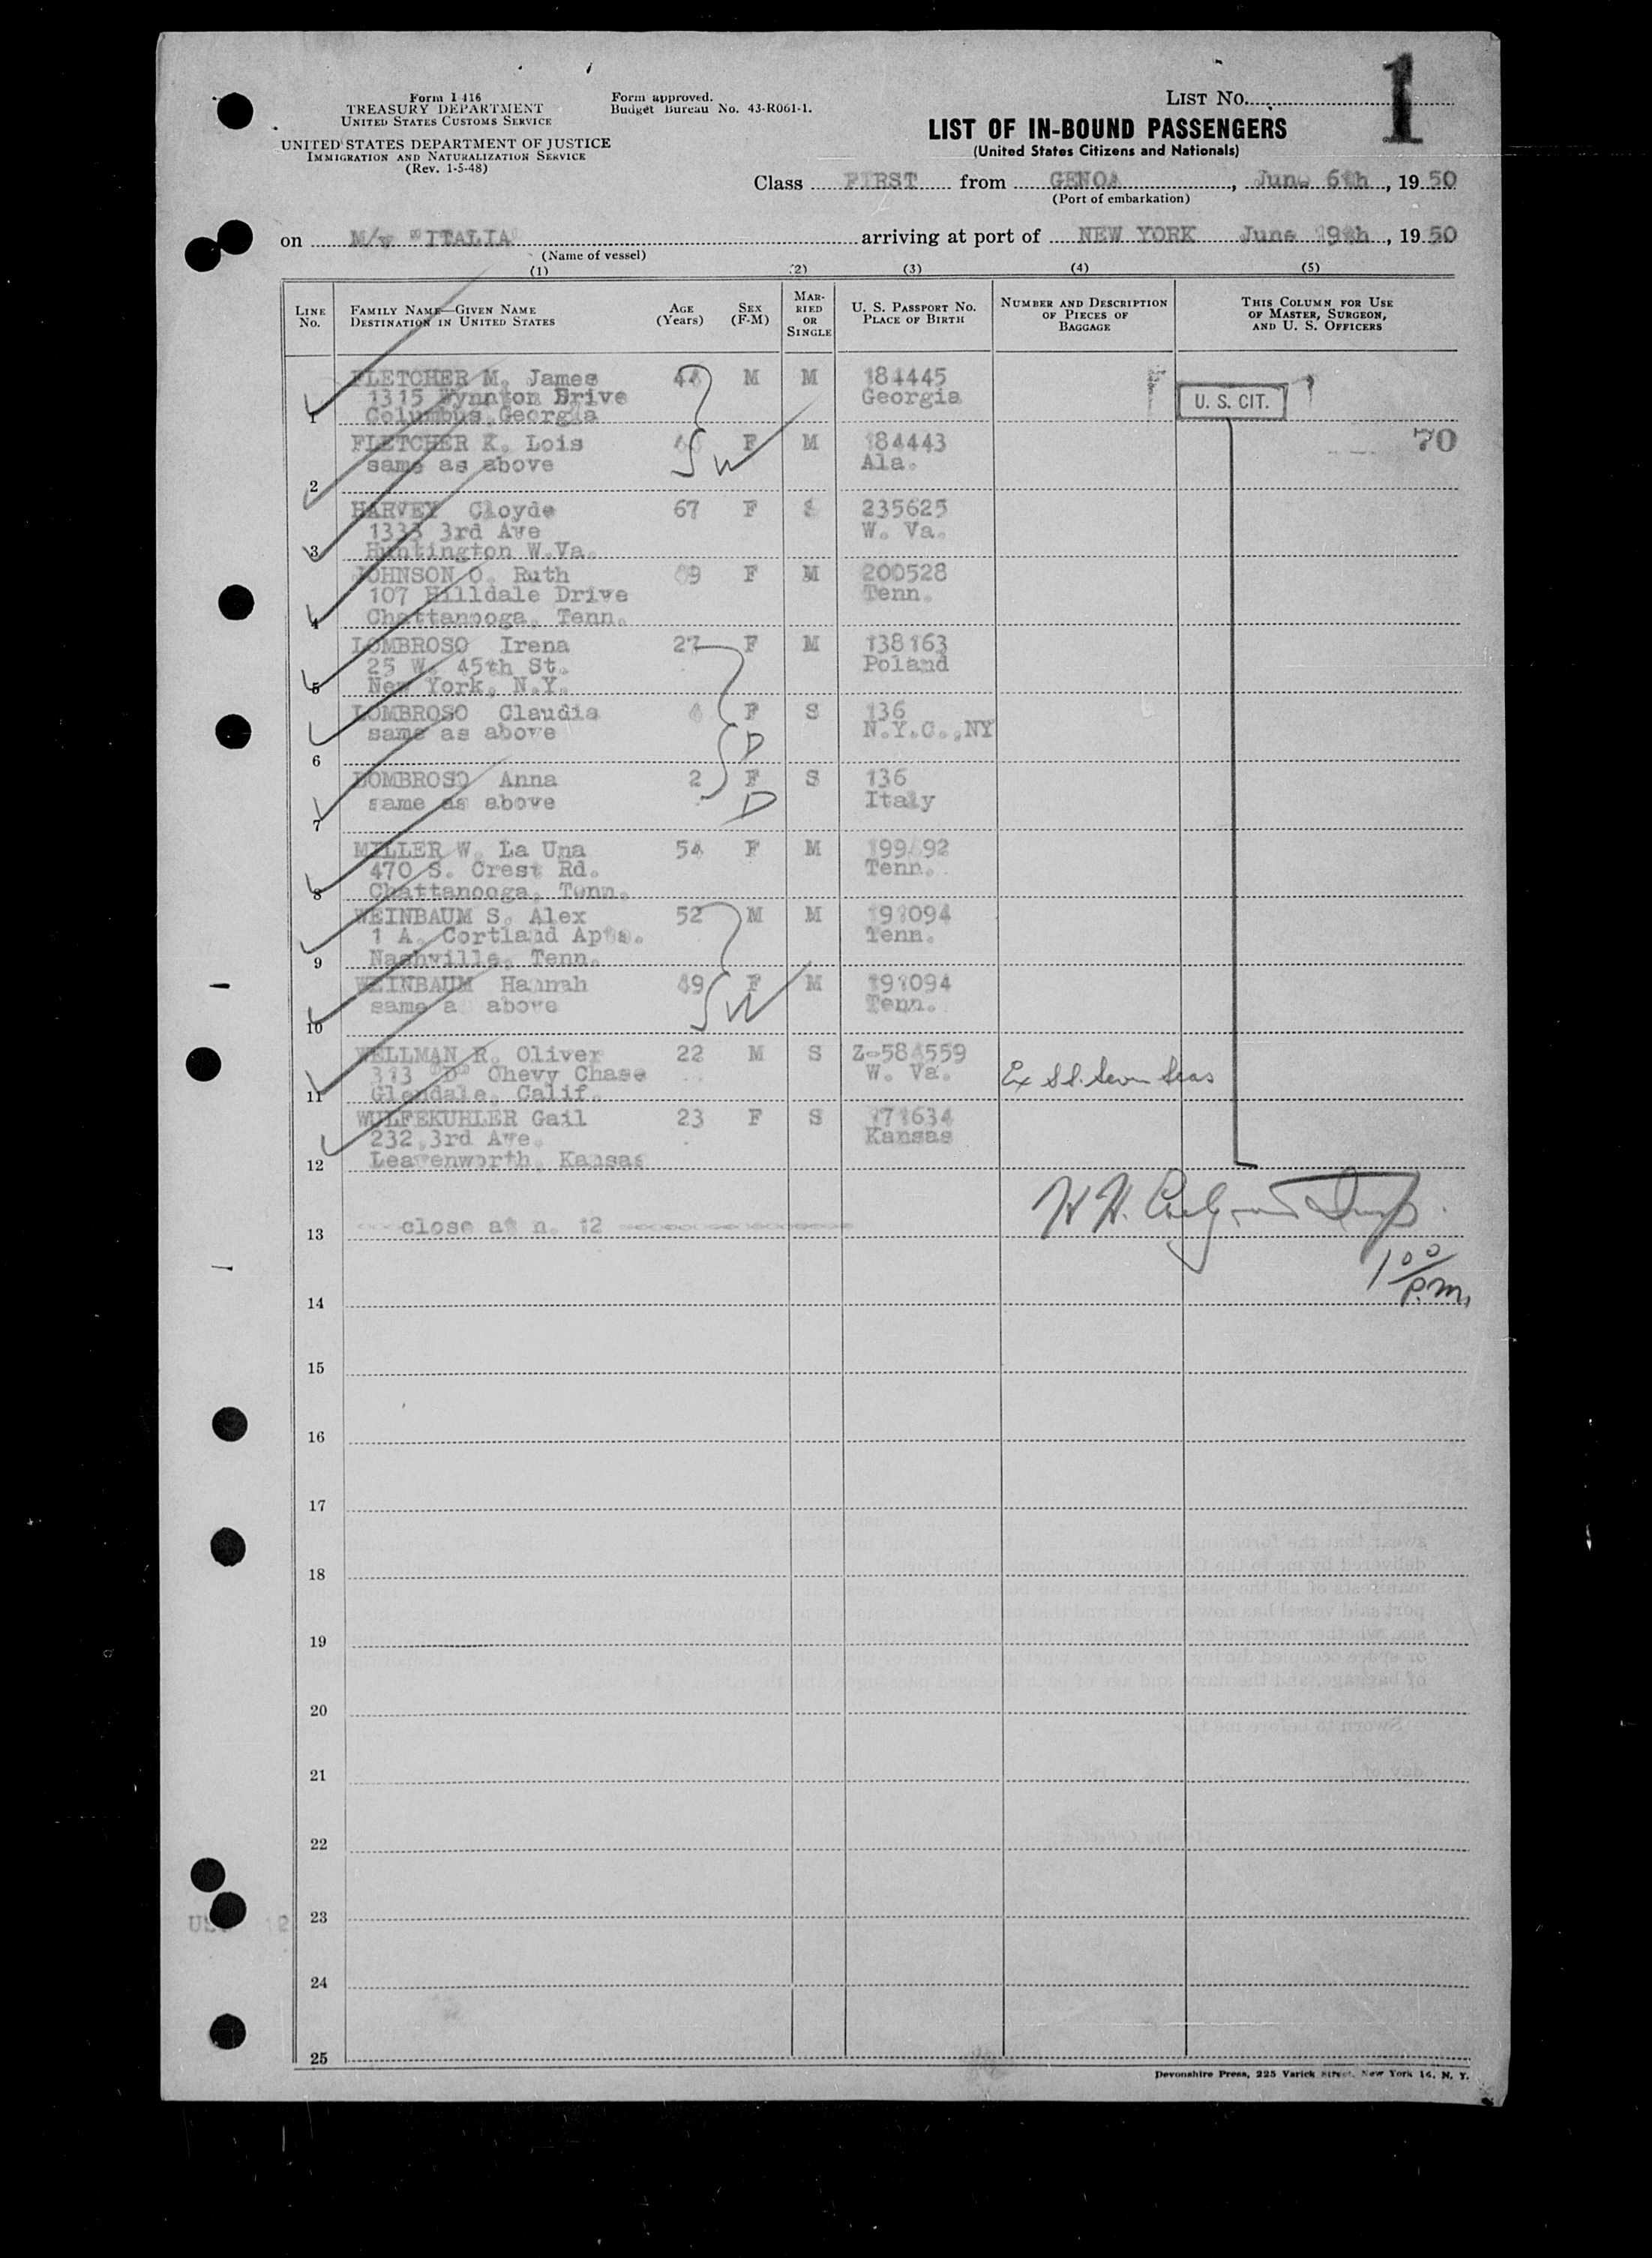 Form I 416
TREASURY DEPARTMENT
UNITED STATES CUSTOMS SERVICE
UNITED STATES DEPARTMENT OF JUSTICE
IMMIGRATION AND NATURALIZATION SERVICE
(Rev. 1-5-48)
Form approved.
Budget Bureau No. 43-R061-1.
LIST NO. 1
LIST OF IN-BOUND PASSENGERS
(United States Citizens and Nationals)
Class FIRST from GENOA, June 6th, 1950
(Port of embarkation)
on M/v "ITALIA" arriving at port of NEW YORK June 19th, 1950
(Name of vessel)
(1) (2) (3) (4) (5)
LINE NO. FAMILY NAME—GIVEN NAME DESTINATION IN UNITED STATES AGE (Years) SEX (F-M) MARRIED OR SINGLE U. S. PASSPORT NO. PLACE OF BIRTH NUMBER AND DESCRIPTION OF PIECES OF BAGGAGE THIS COLUMN FOR USE OF MASTER, SURGEON, AND U. S. OFFICERS
FLETCHER M. James M M 184445
1315 Wynnton Drive Georgia U. S. CIT.
1 Columbus Georgia
FLETCHER K. Lois F M 184443 70
same as above W Ala.
2
HARVEY Cloyde 67 F S 235625
1333 3rd Ave W. Va.
3 Huntington W.Va.
JOHNSON O. Ruth F M 200528
107 Hilldale Drive Tenn.
4 Chattanooga, Tenn.
LOMBROSO Irena 27 F M 138163
25 W. 45th St. Poland
5 New York, N.Y.
LOMBROSO Claudia F S 136
same as above D N.Y.C.,NY
6
LOMBROSO Anna 2 F S 136
same as above D Italy
7
MILLER W. La Una 54 F M
470 S. Crest Rd. Tenn.
8 Chattanooga, Tenn.
WEINBAUM S. Alex 52 M M 191094
1 A. Cortland Apts. Tenn.
9 Nashville, Tenn.
WEINBAUM Hannah 49 F M 191094
same as above W Tenn.
10
WELLMAN R. Oliver 22 M S
313 "D" Chevy Chase W. Va. Ex S.S. Seven Seas
11 Glendale, Calif.
WULFEKUHLER Gail 23 F S 171634
232 3rd Ave. Kansas
12 Leavenworth, Kansas
13 close at n. 12
1 00 P.M.
14
15
16
17
18
19
20
21
22
23
24
25
Devonshire Press, 225 Varick Street, New York 14, N. Y.